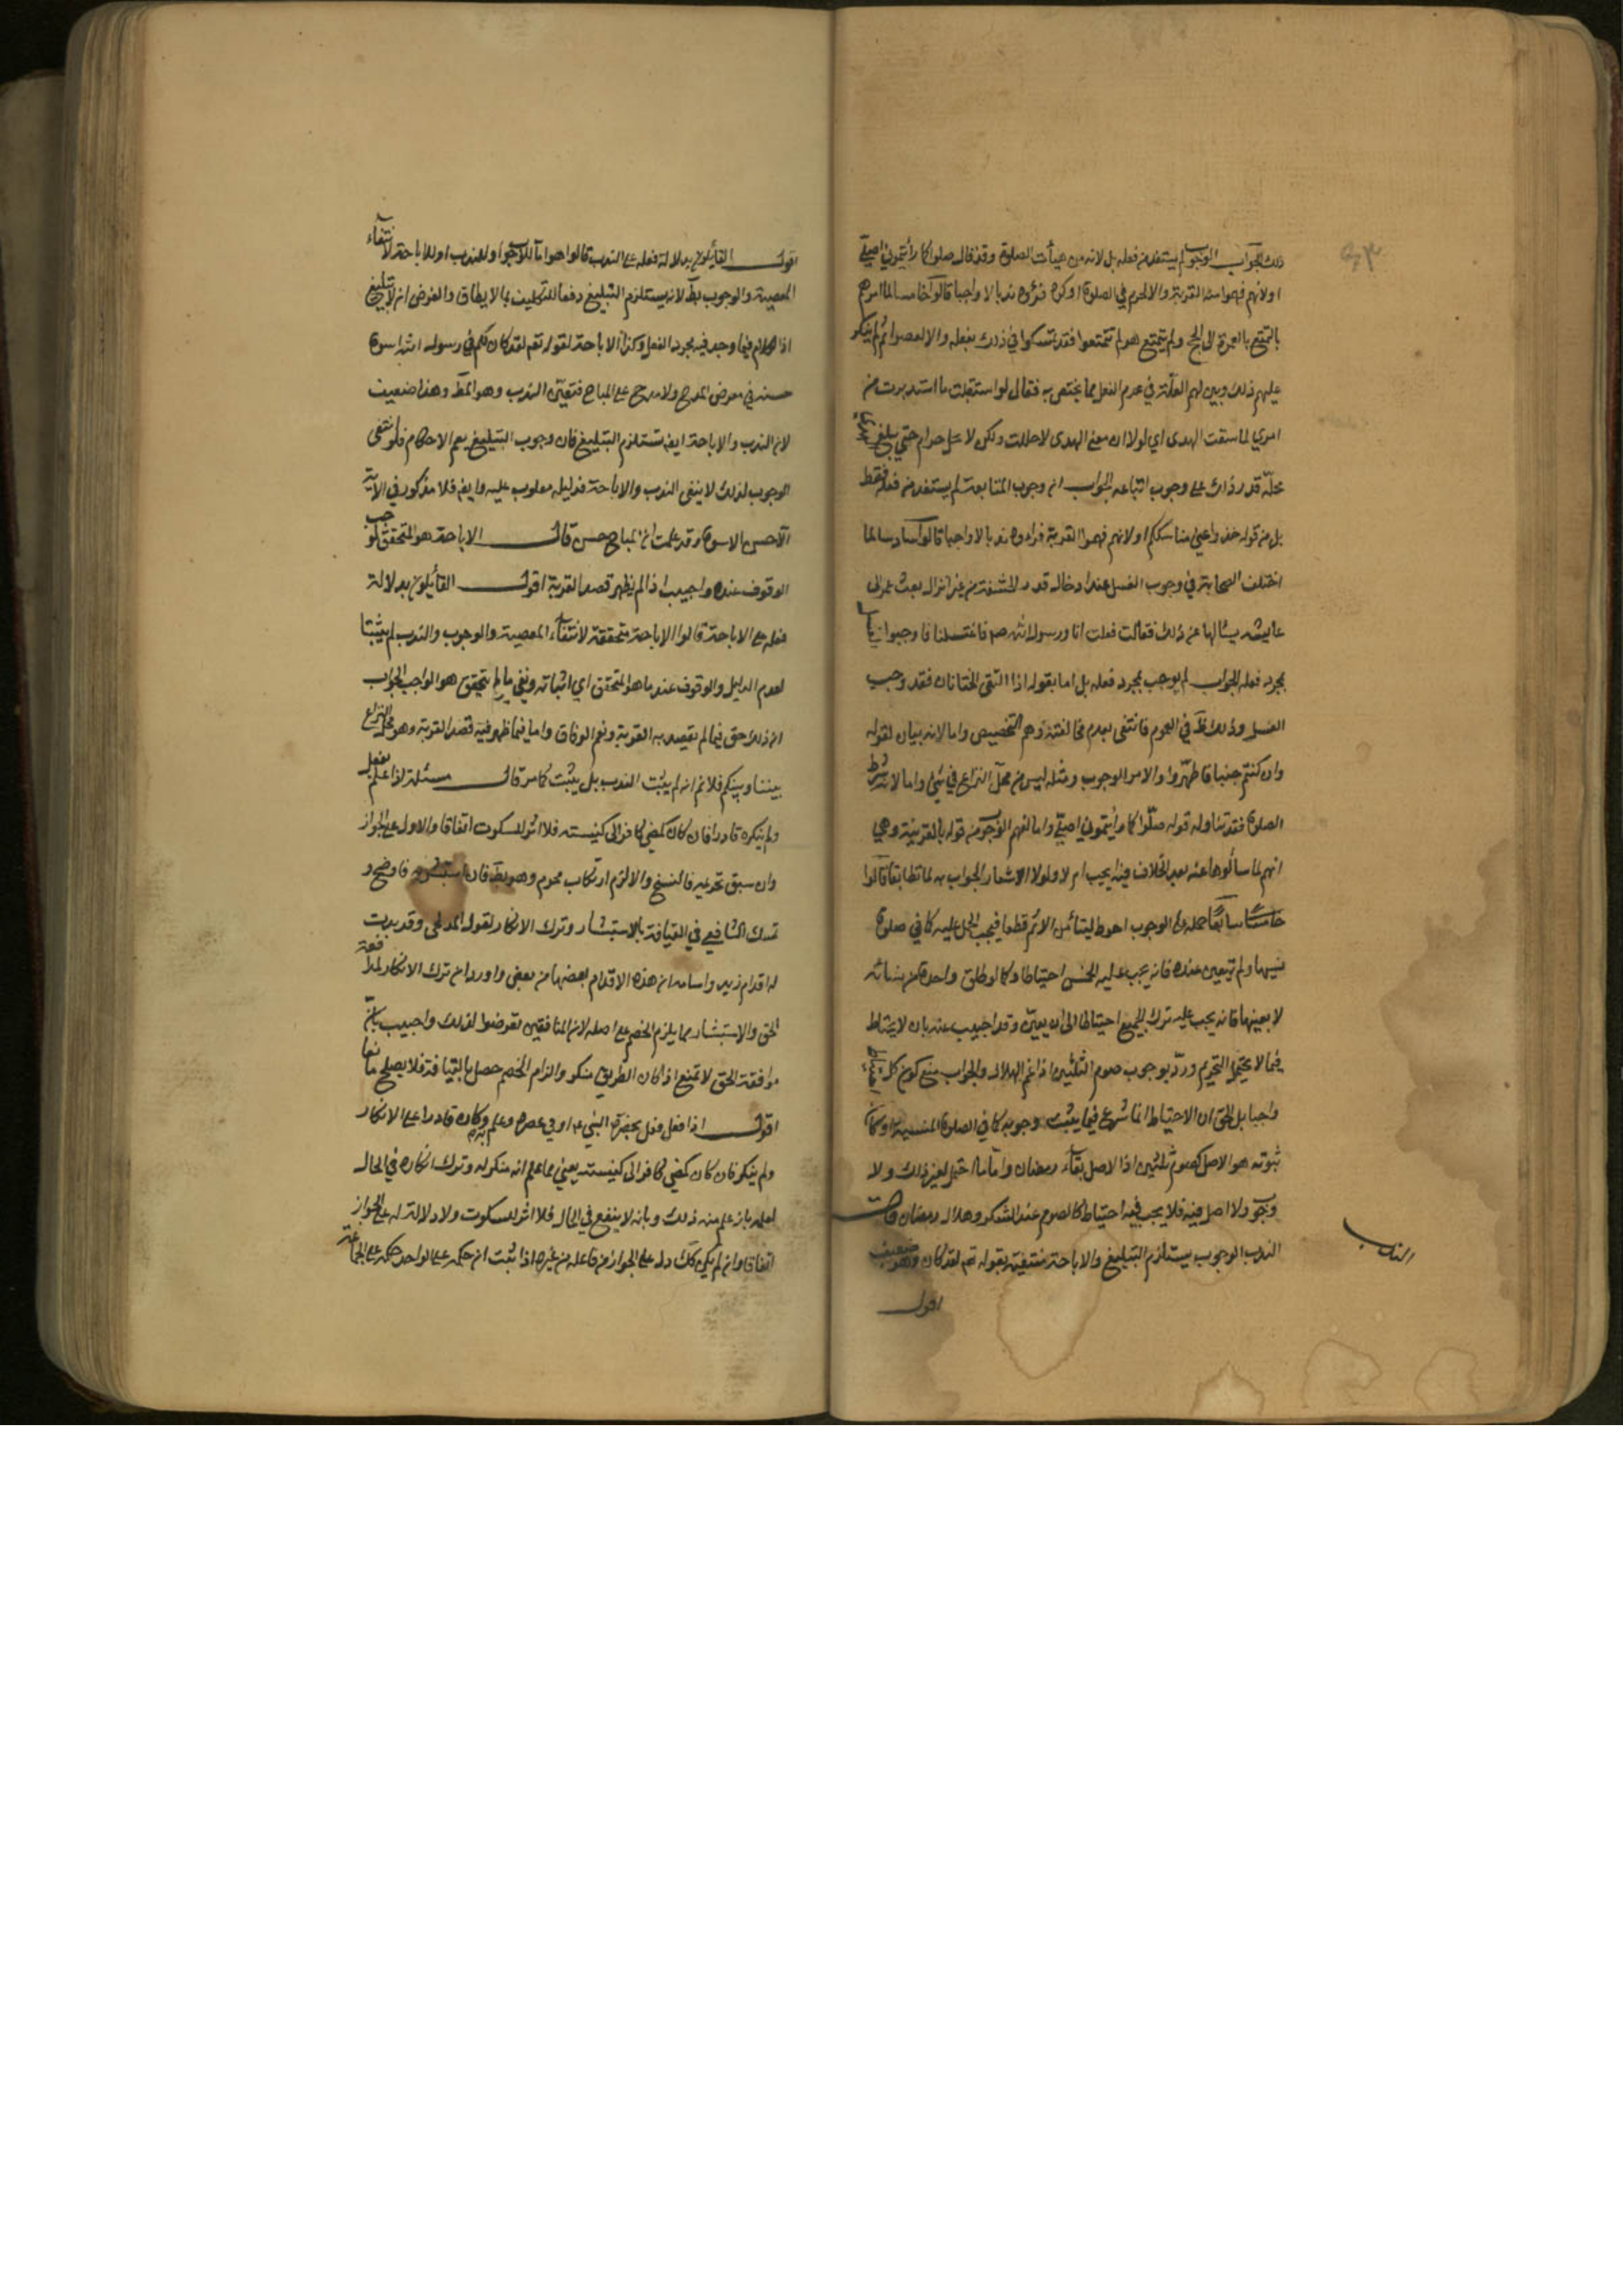 ذلك الجواب الوجوب لم يستفد من فعله بل لانه من هيأت الصلوة وقد قال صلوا كما رأيتموني اصلي
او لانهم فهموا منه القربة والا لحرم في الصلوة او كره فرأوه ندبا لا واجبا قالوا خامسا لما امرهم
بالتمتع بالعمرة الى الحج ولم يتمتع هو لم يتمتعوا فقد تمسكوا في ذلك بفعله والا لعصوا ثم لم ينكر
عليهم ذلك وبين لهم العلة في عدم الفعل مما يختص به فقال لو استقبلت ما استدبرت من
امري لما سقت الهدى اي لولا ان معي الهدى لاحللت ولكن لا يحل حرام حتى يبلغ
محله فدل ذلك على وجوب اتباعه الجواب ان وجوب المتابعة لم يستفد من فعله فقط
بل من قوله خذوا عني مناسككم او لانهم فهموا القربة فرأوه ندبا لا واجبا قالوا سادسا لما
اختلف الصحابة في وجوب الغسل عند ادخال قدر الحشفة من غير انزال بعث عمر الى
عايشه يسألها عن ذلك فقالت فعلت انا ورسول الله صم فاغتسلنا فاوجبوا
بمجرد فعله الجواب لم يوجب بمجرد فعله بل اما بقوله اذا التقى الختانان فقد وجب
الغسل وذلك ظ في العموم فانتفى بعدم مخالفته وهم التخصيص واما لانه بيان لقوله
وان كنتم جنبا فاطهروا والامر للوجوب ومثله ليس من محل النزاع في شئ واما لانه شرط
الصلوة فقد تناوله قوله صلوا كما رأيتموني اصلي واما لفهم الوجوب من قوله بالقرينة وهي
انهم لما سألوها عنه بعد الخلاف فيه ايجب ام لا ولولا الاشعار الجواب به لما تطابقا قالوا
سابعا حمله على الوجوب احوط ليتأمن الاثم قطعا فيجب الحمل عليه كما في صلوة
نسيها ولم تتعين عنده فانه يجب عليه الخمس احتياطا وكما لو طلق واحدة من نسائه
لا بعينها فانه يجب عليه ترك الجميع احتياطا الى ان يعين وقد اجيب عنه بان لا يحتاط
فيما لا يحتمل التحريم ورد بوجوب صوم الثلثين اذا غم الهلال والجواب منع كون كل
واجبا بل الحق ان الاحتياط انما شرع فيما يثبت وجوبه كما في الصلوة المنسية او كان
ثبوته هو الاصل كصوم ثلثين اذ الاصل بقاء رمضان واما ما احتمل لغير ذلك ولا
وجوب ولا اصل فيه فلا يجب فيه احتياط كالصوم عند الشك وهلال رمضان قال
الندب الوجوب يستلزم التبليغ والاباحة منتفية بقوله تع لقد كان وهو ضعيف
اقول
الندب
اقول القائلون بدلالة فعله على الندب قالوا هو اما للوجوب او للندب او للاباحة لانتفاء
المعصية والوجوب بط لانه يستلزم التبليغ دفعا للتكليف بما لا يطاق والفرض ان لا تبليغ
اذ الكلام فيما وجد فيه مجرد الفعل وكذا الاباحة لقوله تعم لقد كان لكم في رسول الله اسوة
حسنة في معرض المدح ولا مدح على المباح فتعين الندب وهو المط وهذا ضعيف
لان الندب والاباحة ايض تستلزم التبليغ فان وجوب التبليغ يعم الاحكام فلو انتفى
الوجوب لذلك لا ينفى الندب والاباحة فدليله مقلوب عليه وايض فلا مذكور في الآية
الا حسن الاسوة وقد علمت ان المباح حسن قال الاباحة هو المتحقق فوجب
الوقوف عنده واجيب اذا لم يظهر قصد القربة اقول القائلون بدلالة
فعله على الاباحة قالوا الاباحة متحققة لانتفاء المعصية والوجوب والندب لم يثبتا
لعدم الدليل والوقوف عند ما هو المتحقق اي اثباته ونفي ما لم يتحقق هو الواجب الجواب
ان ذلك حق فيما لم يقصد به القربة ونعم الوفاق واما فيما ظهر فيه قصد القربة وهو محل النزاع
بيننا وبينكم فلا نم انه لم يثبت الندب بل يثبت كما مر قال مسئلة اذا علم بفعل
ولم ينكره قادرا فان كان كمضي كافر الى كنيسته فلا اثر للسكوت اتفاقا والا دل على الجواز
وان سبق تحريمه فالنسخ والا لزم ارتكاب محرم وهو بط فان استبشر به فاوضح و
تمسك الشافعي في القيافة بالاستبشار وترك الانكار لقول المدلجي وقد بدت
له اقدام زيد واسامه ان هذه الاقدام بعضها من بعض واورد ان ترك الانكار لموافقة
الحق والاستبشار بما يلزم الخصم على اصله لان المنافقين تعرضوا لذلك واجيب بان
موافقة الحق لا تمنع اذا كان الطريق منكر والزام الخصم حصل بالقيافة فلا يصلح مانعا
اقول اذا فعل فعل بحضرة النبي عم او في عصره وعلم به وكان قادرا على الانكار
ولم ينكر فان كان كمضي كافر الى كنيسته يعني مما علم انه منكر له وترك انكاره في الحال
لعلمه بانه علم منه ذلك وبانه لا ينفع في الحال فلا اثر للسكوت ولا دلالة له على الجواز
اتفاقا وان لم يكن كذلك دل على الجواز من فاعله ومن غيره اذا ثبت ان حكمه على الواحد حكمه على الجماعة